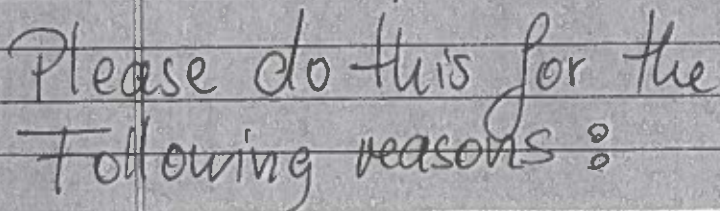 Please do this for the
Following reasons: